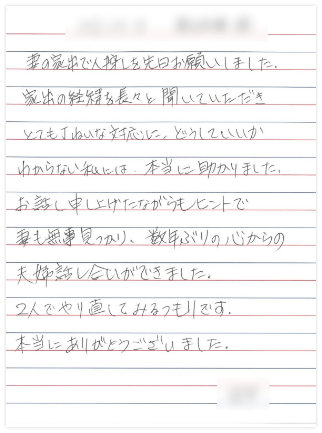 妻の家出で人探しを先日お願いしました。
家出の経緯を長々と聞いていただき
とても丁ねいな対応に、どうしていいか
わからない私には、本当に助かりました。
お話し申し上げたながらもヒントで
妻も無事見つかり、数年ぶりの心からの
夫婦話し合いができました。
2人でやり直してみるつもりです。
本当にありがとうございました。